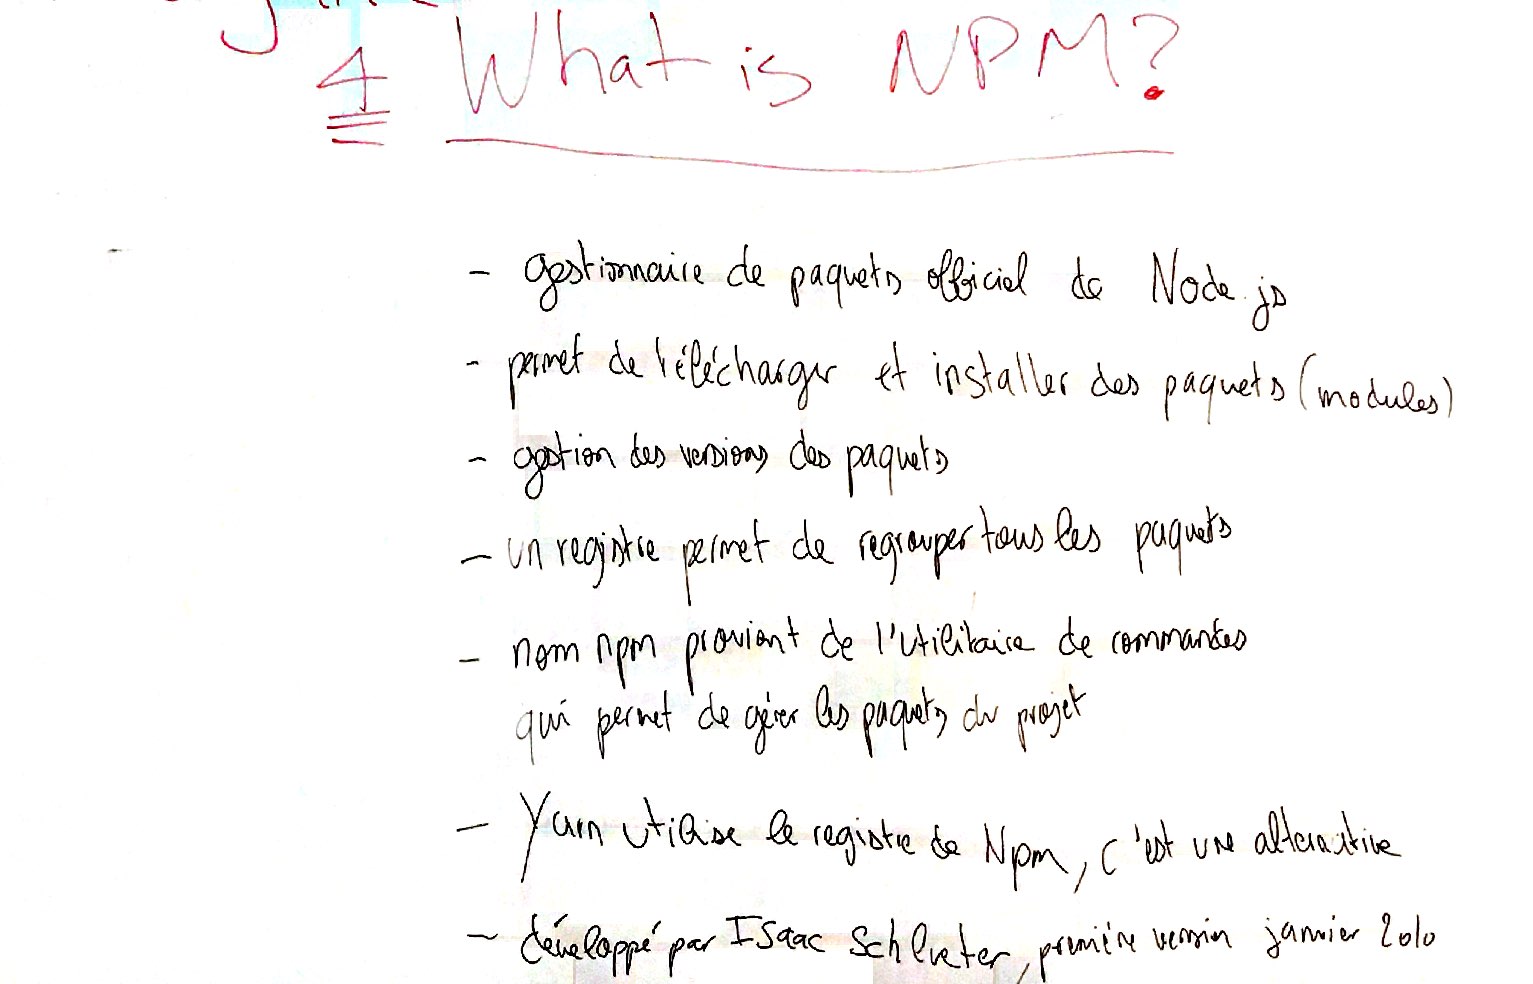 4 What is NPM?
- gestionnaire de paquets officiel de Node.js
- permet de télécharger et installer des paquets (modules)
- gestion des versions des paquets
- un registre permet de regrouper tous les paquets
- nom npm provient de l'utilitaire de commandes
qui permet de gérer les paquets du projet
- Yarn utilise le registre de Npm, c'est une alternative
- développé par Isaac Schlueter, première version janvier 2010